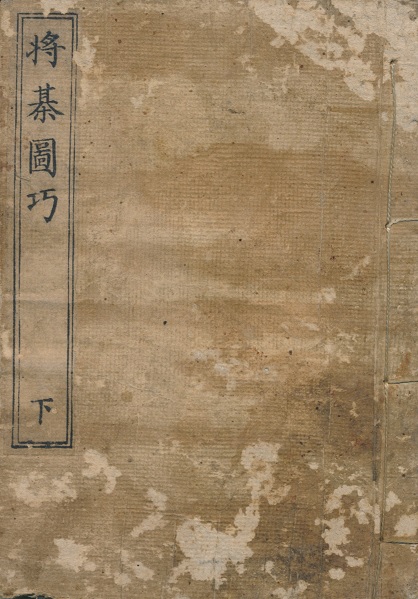 将棊圖巧 下